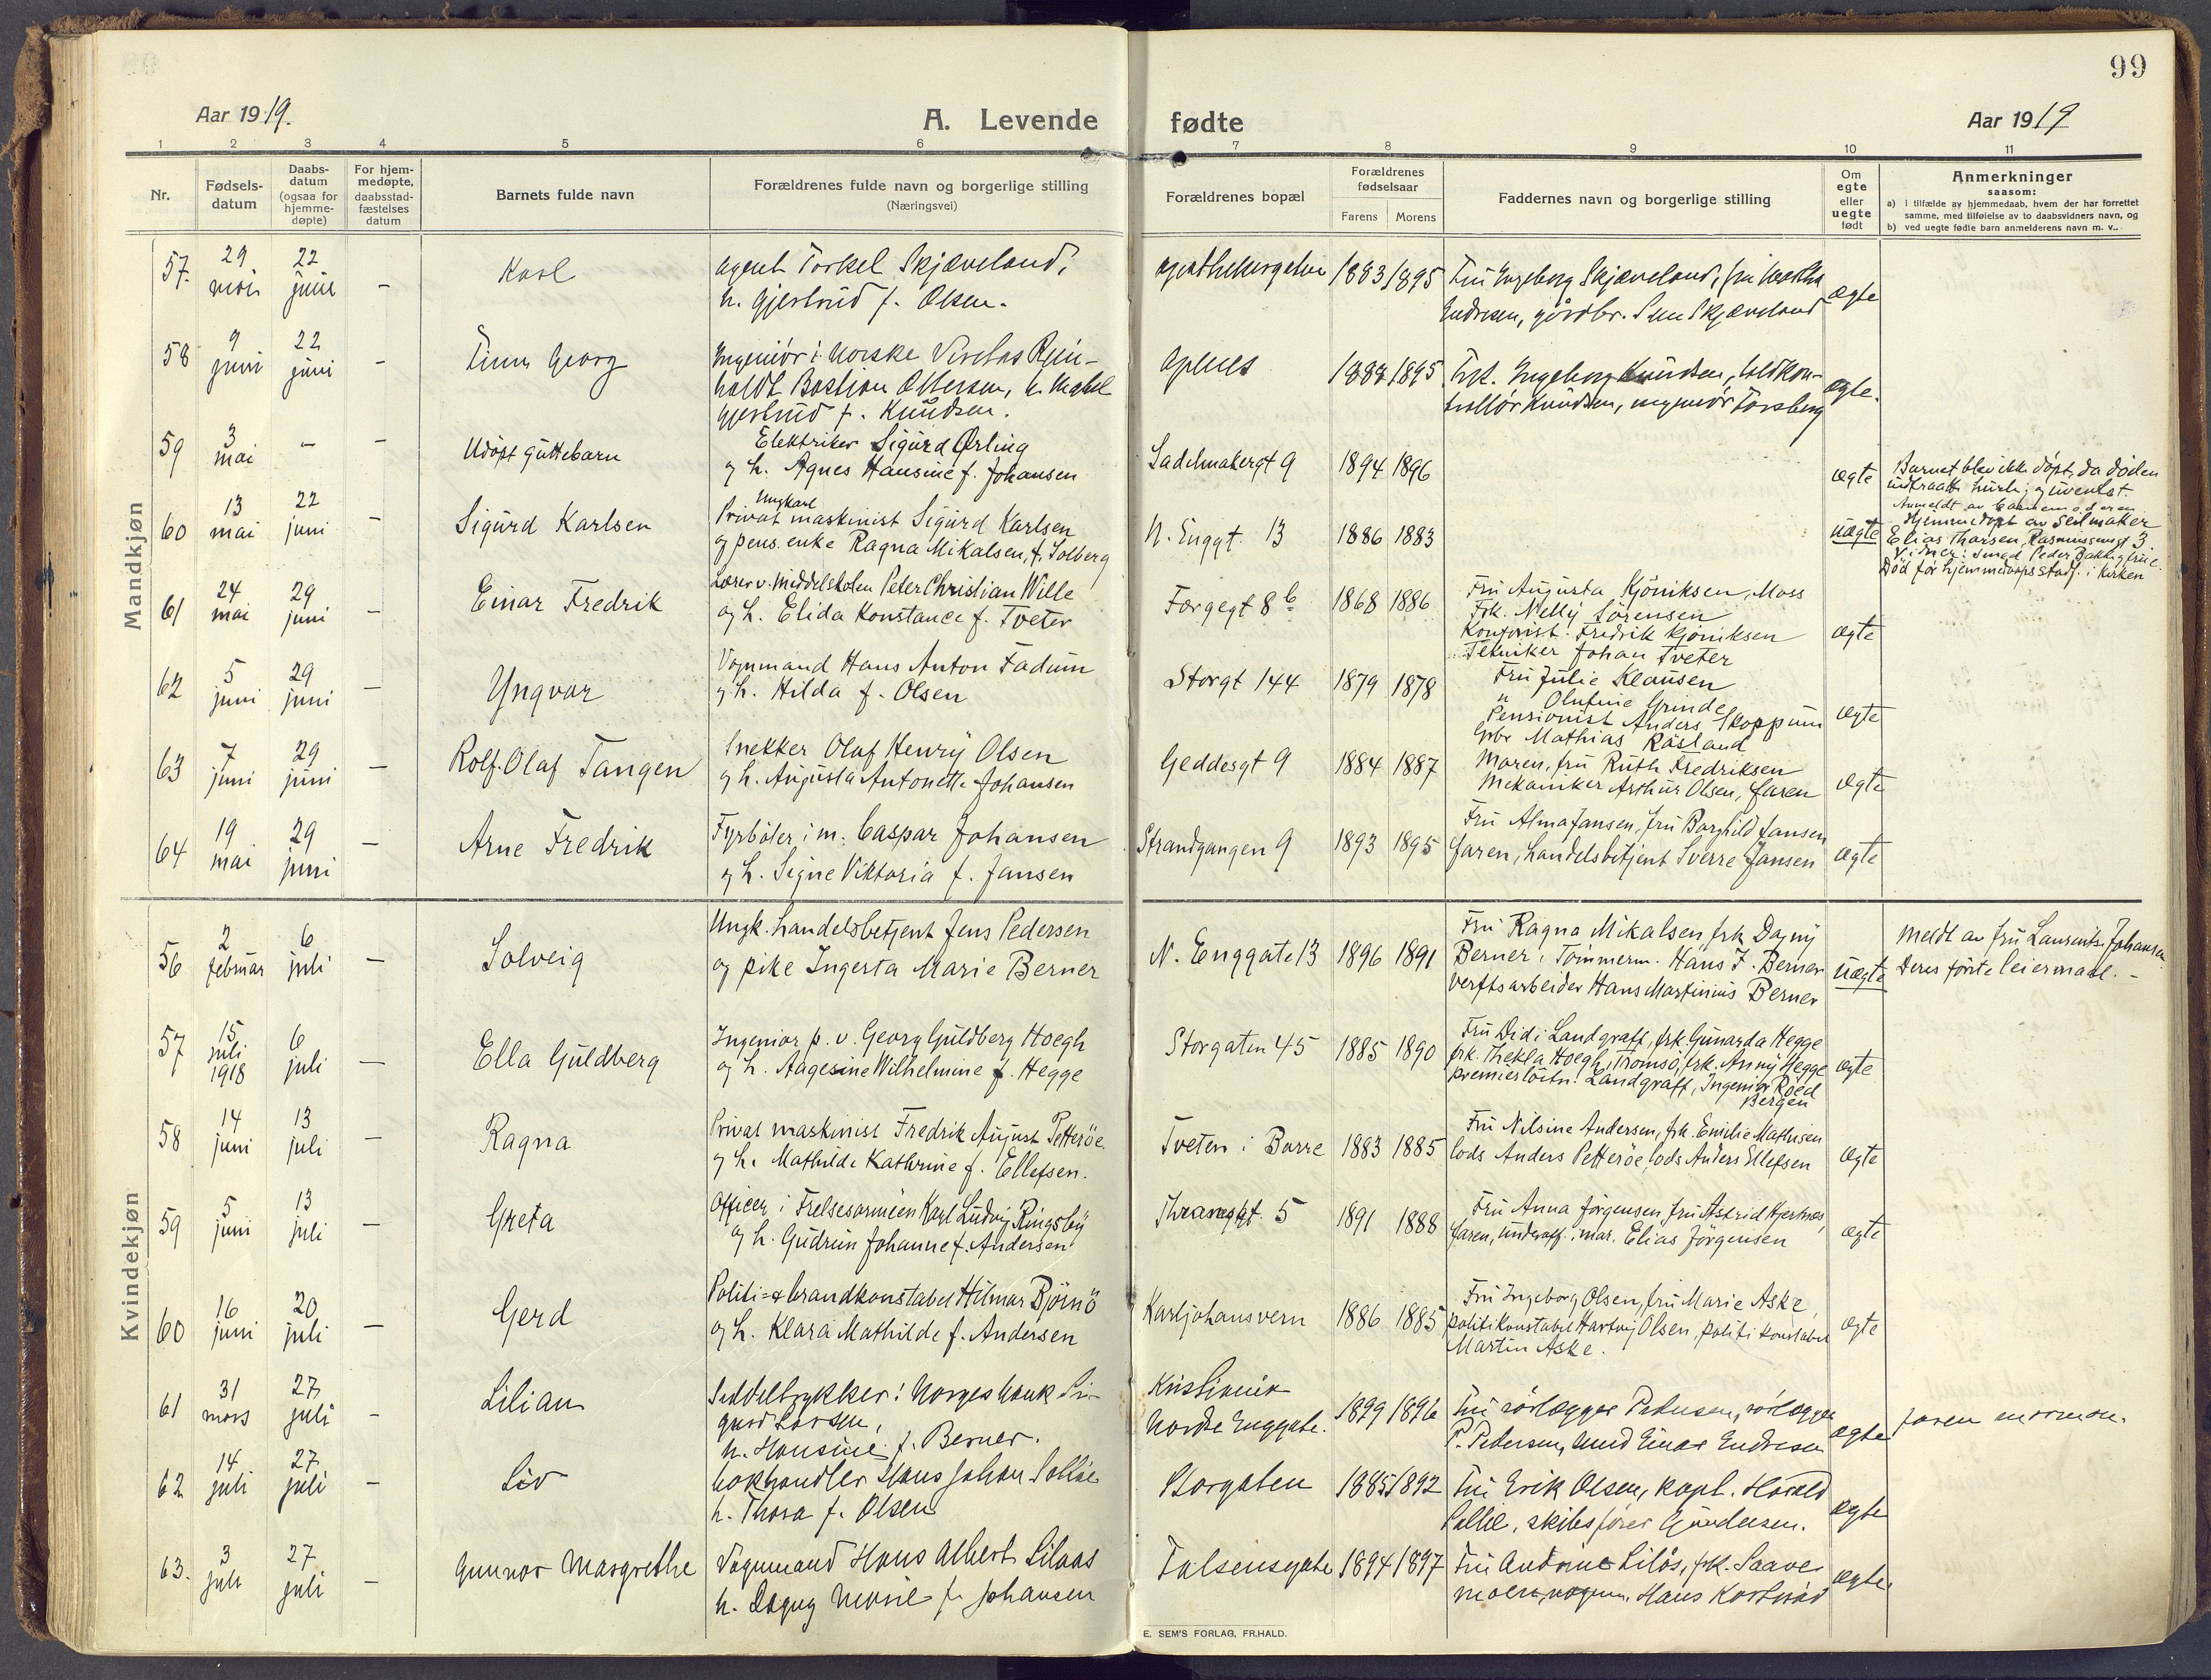 99
Aar 1919.
A. Levende fødte
Aar 1919
1 2 3 4 5 6 7 8 9 10 11
Nr.
Fødsels-
datum
Daabs-
datum
(ogsaa for
hjemme-
døpte)
For hjem-
medøpte,
daabsstad-
fæstelses
datum
Barnets fulde navn
Forældrenes fulde navn og borgerlige stilling
(Næringsvei)
Forældrenes bopæl
Forældrenes
fødselsaar
Farens Morens
Faddernes navn og borgerlige stilling
Om
egte
eller
uegte
født
Anmerkninger
saasom:
a) i tilfælde av hjemmedaab, hvem der har forrettet
samme, med tilføielse av to daabsvidners navn, og
b) ved uegte fødte barn anmelderens navn m. v..
Mandkjøn
57. 29 22 Karl agent Torkel Skjæveland,
mai juni - h. Gjertrud f. Olsen.
1883 1895 Fru Ingeborg Skjæveland, fru
Endresen, gårdbr. Skjæveland
ægte
58 9 22 Finn Georg Ingeniør i Norske Veritas Rein-
juni juni - holdt Bastian Ottersen, h. Mabel
Gjertrud f. Knudsen.
1895 Frk. Ingeborg Knudsen, toldkon-
trollør Knudsen, ingeniør Forsberg
ægte.
59 3 - - Udøpt guttebarn Elektriker Sigurd Ørling
mai og h. Agnes Hansine f. Johansen
Sadelmakergt 9 1894 1896 ægte
Barnet blev ikke døpt, da døden
indtraatt hurtig og uventet.
60 13 22 - Sigurd Karlsen Ungkarl
mai juni Privat maskinist Sigurd Karlsen
og pens. enke Ragna Mikalsen, f. Solberg
N. Enggt. 13 1886 1883 uægte
Hjemmedøpt av Seilmaker
Elias Thorsen, Rasmussengt 3
Vidner: Smed Peder Bakke
Død før hjemmedaapsstadf. i kirken
61 24 29 - Einar Fredrik Lærer v. middelskolen Peter Christian Wille
mai juni og h. Elida Konstance f. Tveter
Færgegt 8b 1868 1886 Fru Augusta Kjöniksen, Moss
Frk. Nelly Sörensen
Kontorist Fredrik Kjöniksen
Tekniker Johan Tveter
ægte
62 5 29 - Yngvar Vognmand Hans Anton Fadum
juni juni og h. Hilda f. Olsen
Storgt 144 1879 1878 Fru Julie Klausen
" Olufine Grinde
Pensionist Anders Skoppum
Gbr Mathias Råstad
ægte
63 7 29 - Rolf Olaf Tangen Snekker Olaf Henry Olsen
juni juni og h. Augusta Antonette Johansen
Geddesgt 9 1884 1887 Moren, fru Ruth Fredriksen
Mekaniker Arthur Olsen, faren
ægte
64 19 29 - Arne Fredrik Fyrböter i m. Caspar Johansen
mai juni og h. Signe Viktoria f. Jansen
Strandgangen 9 1893 1895 Fru Alma Jansen, fru Borghild Jansen
faren, handelsbetjent Sverre Jansen
ægte
Kvindekjøn
56 2 6 - Solveig Ungk. handelsbetjent Jens Pedersen
februar juli og pike Ingerta Marie Berner
N. Enggate 13 1896 1891 Fru Ragna Mikalsen, frk Dagny
Berner, Tömmerm. Hans F. Berner
verftsarbeider Hans Martinius Berner
uægte
Meldt av fru Laurentze Johansen.
Deres förste leiermaal. -
57 15 6 - Ella Guldberg Ingeniør p. v. Georg Guldberg Hoegh
juli juli og h. Aagesine Wilhelmine f. Hegge
1918
Storgaten 45 1885 1890 Fru Didi Landgraff, frk. Gunarda Hegge
frk. Thekla Hoegh, Tromsö, frk. Anny Hegge
premierlöitn. Landgraff, Ingeniör Roed
Bergen
ægte
58 14 13 - Ragna Privat maskinist Fredrik August Petteröe
juni juli og h. Mathilde Kathrine f. Ellefsen.
Tveten i Borre 1883 1885 Fru Nilsine Andersen, frk. Emilie Mathisen
lods Anders Petteröe, lods Anders Ellefsen
ægte
59 5 13 - Greta Officer i Frelsesarmeen Karl Ludvig Ringsby
juni juli og h. Gudrun Johanne f. Andersen
Thranesgt. 5 1891 1888 Fru Anna Jörgensen, fru Astrid Hjertnes,
faren, underoff. i mar. Elias Jörgensen
ægte
60 16 20 - Gerd Politi- & brandkonstabel Hilmar Björnö
juni juli og h. Klara Mathilde f. Andersen
Karljohansvern 1886 1885 Fru Ingeborg Olsen, fru Marie Aske,
politikonstabel Hartvig Olsen, politikonstabel
Martin Aske.
ægte
61 31 27 - Lilian Seddeltrykker i Norges bank Si-
mars juli gurd Larsen,
h. Hansine f. Berner.
Kristiania
Nordre Enggate. 1899 1896 Fru rørlægger Pedersen, rørlægger
P. Pedersen, Einar Endresen
ægte
faren mormon.
62 14 27 - Liv bokhandler Hans Johan Sollie
juli juli h. Thora f. Olsen
Storgaten 1885 1892 Fru Erik Olsen, kapt. Harald
Sollie, skibsfører Gundersen.
ægte
63. 3 27 - Gunnor Margrethe Vognmand Hans Albert Liloas
juli juli h. Dagny Marie f. Johansen
Falsensgate 1894 1897 Fru Andrine Lilås, frk. Saave
moen, vognm. Hans
ægte.
E. SEM'S FORLAG, FR.HALD.